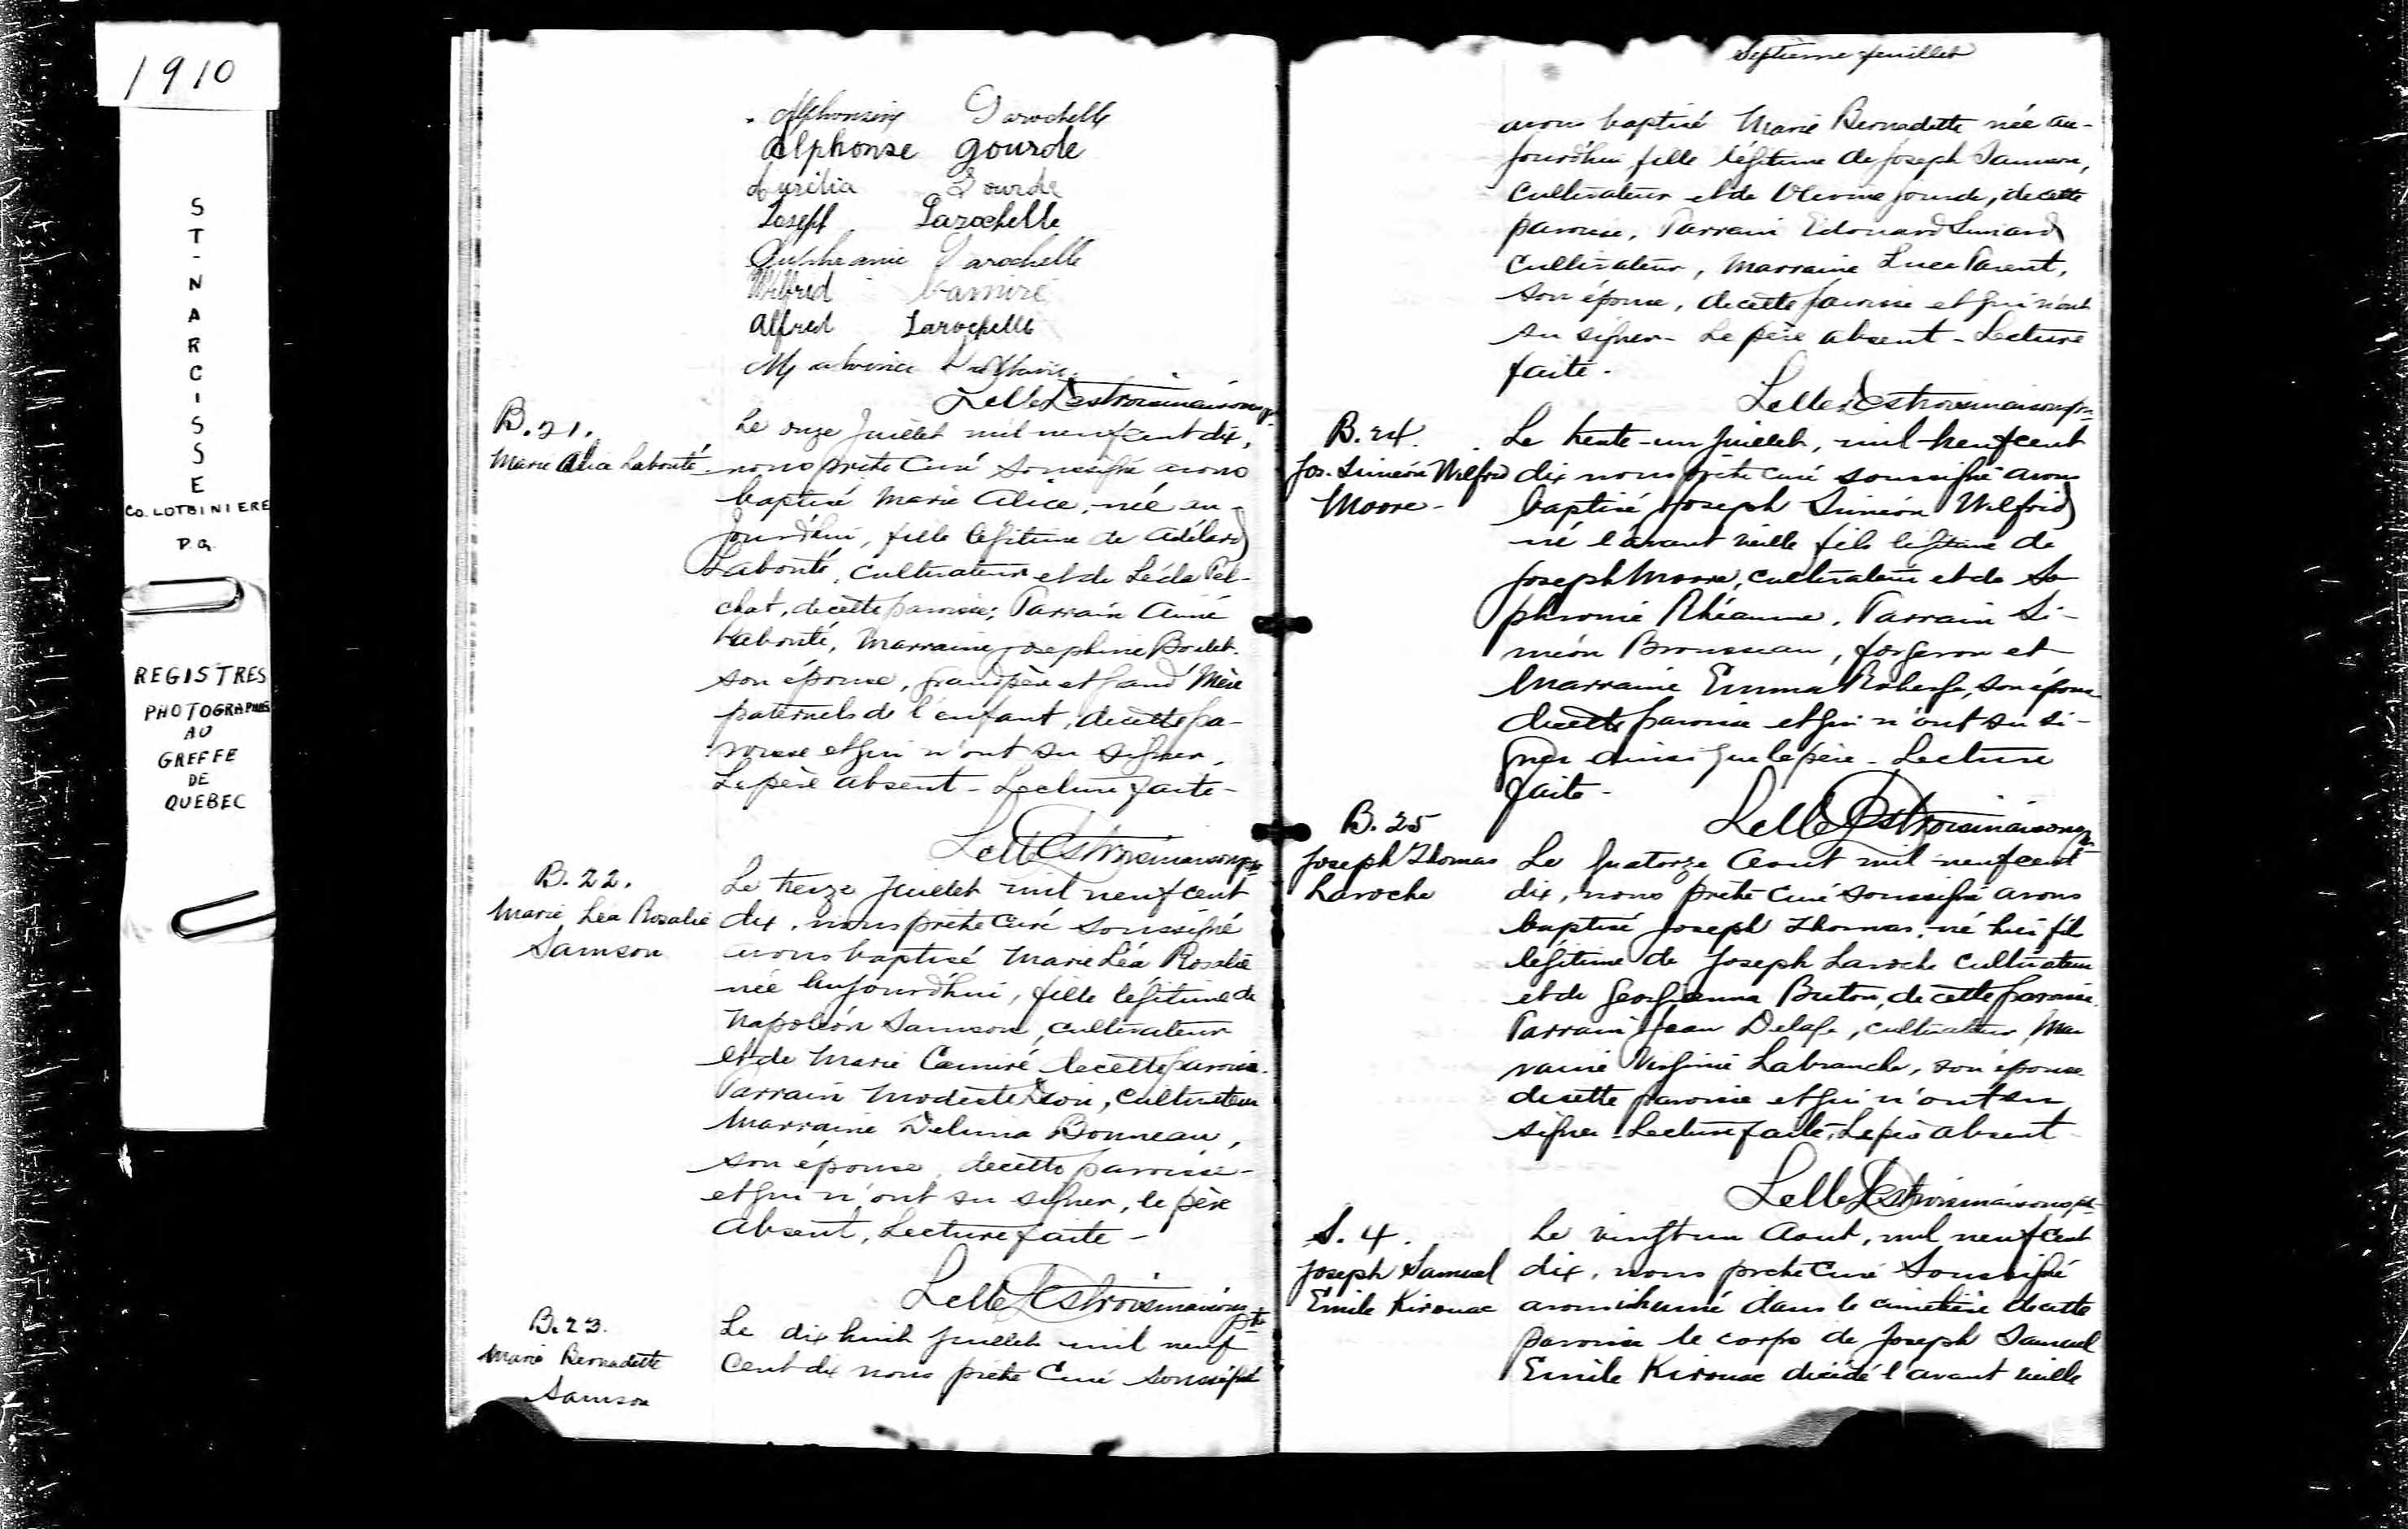 1910
ST-NARCISSE
CO. LOTBINIERE
P.Q.
REGISTRES
PHOTOGRAPHIES
AU
GREFFE
DE
QUEBEC
Alphonsine Larochelle
Alphonse Gourde
Aurélia Gourde
Joseph Larochelle
Larochelle
Wilfred Camiré
Alfred Larochelle
Lelle Destroismaisons ptr
B.21.
Marie Alice Labonté
Le onze Juillet mil neuf cent dix,
nous prêtre Curé soussigné avons
baptisé Marie Alice, née au-
jourd'hui, fille légitime de Adélard
Labonté, cultivateur et de Léda Pel-
chat, de cette paroisse; Parrain Aimé
Labonté, Marraine Josephine Boulet
son épouse, grandpère et grand Mère
paternels de l'enfant, de cette pa-
roisse et qui n'ont su signer.
Le père absent - Lecture faite -
Lelle Destroismaisons ptr
B.22.
Marie Léa Rosalie
Samson
Le treize Juillet mil neuf cent
dix, nous prêtre Curé soussigné
avons baptisé Marie Léa Rosalie
née Aujourd'hui, fille légitime de
Napoléon Samson, cultivateur
et de Marie Camiré de cette paroisse.
Parrain Modeste Dion, Cultivateur
Marraine Delima Bonneau,
son épouse, de cette paroisse -
et qui n'ont su signer, le père
Absent, Lecture faite -
Lelle Destroismaisons ptr
B.23.
Marie Bernadette
Samson
Le dix huit Juillet mil neuf
Cent dix nous prêtre Curé soussigné
Septième feuillet
avons baptisé Marie Bernadette née au-
jourd'hui, fille légitime de Joseph Samson,
Cultivateur et de Olivine Gourde, de cette
paroisse, Parrain Edouard Simard
Cultivateur, Marraine Luce Parent,
son épouse, de cette paroisse et qui n'ont
su signer - Le père absent - Lecture
faite.
Lelle Destroismaisons ptr
B.24.
Jos. Siméon Wilfrid
Moore -
Le trente-un Juillet, mil-neuf cent
dix nous prêtre curé soussigné avons
baptisé Joseph Siméon Wilfrid
né l'avant veille fils légitime de
Joseph Moore, cultivateur et de So
phronie Rhéaume. Parrain Si-
méon Brousseau, forgeron et
Marraine Emma Roberge, son épouse
de cette paroisse et qui n'ont su si-
gner ainsi que le père - Lecture
faite -
Lelle Destroismaisons ptr
B.25
Joseph Thomas
Laroche
Le quatorze Aout mil neuf cent
dix, nous prêtre Curé soussigné avons
baptisé Joseph Thomas, né hier fils
légitime de Joseph Laroche Cultivateur
et de Georgianna Breton, de cette paroisse.
Parrain Jean Delage, cultivateur, Mar
raine Virginie Labranche, son épouse
de cette paroisse et qui n'ont su
signer - Lecture faite, Le père absent
Lelle Destroismaisons ptr
S. 4.
Joseph Samuel
Emile Kirouac
Le vingt un Aout, mil neuf cent
dix, nous prêtre curé Soussigné
avons inhumé dans le cimetière de cette
paroisse le corps de Joseph Samuel
Emile Kirouac décédé l'avant veille